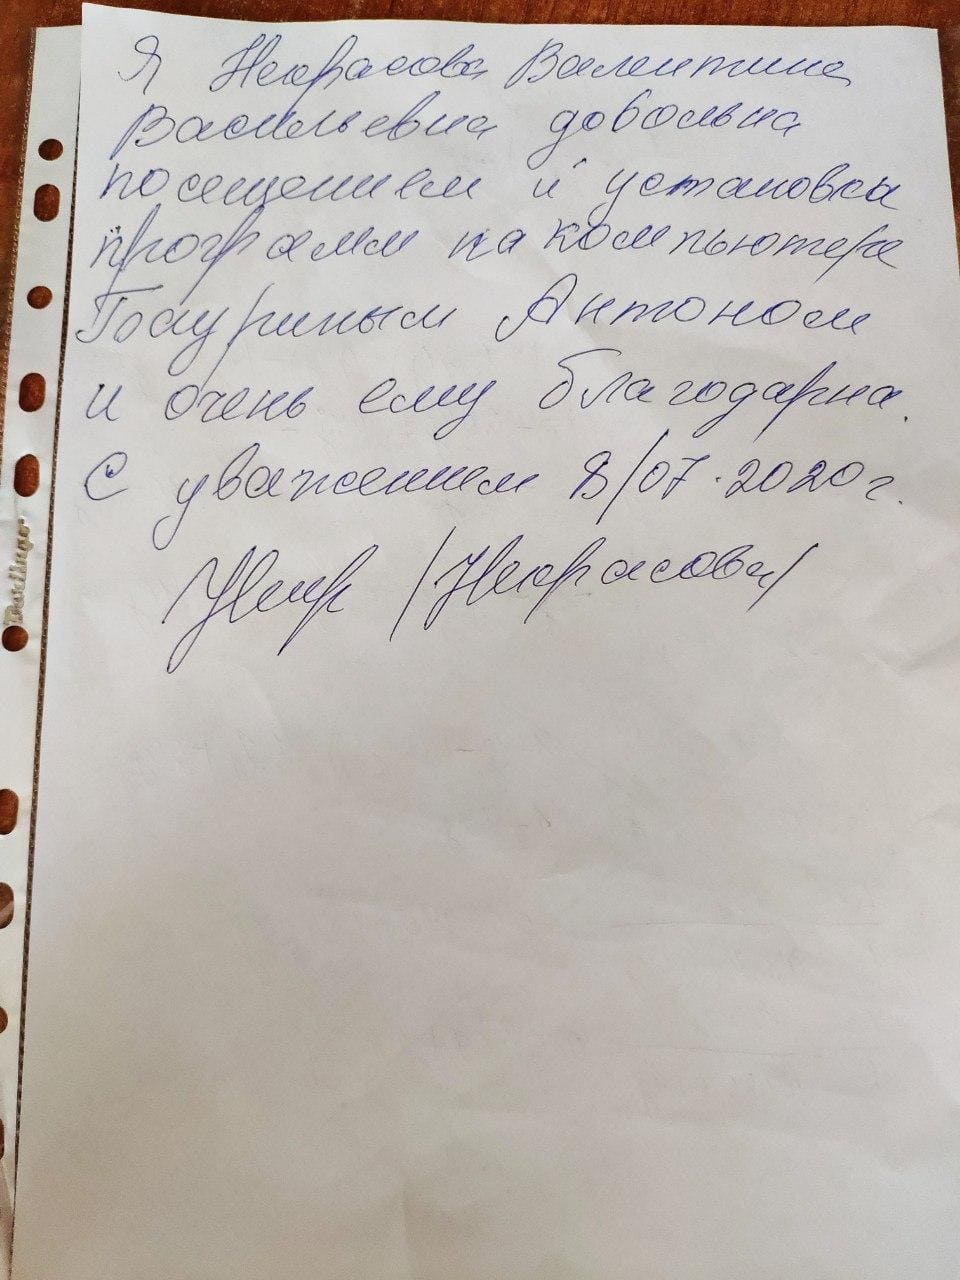 Я Некрасова Валентина
Васильевна довольна
посещением и установка
программ на компьютере
Антоном
и очень ему благодарна.
С уважением 8/07.2020г.
Некр /Некрасова/